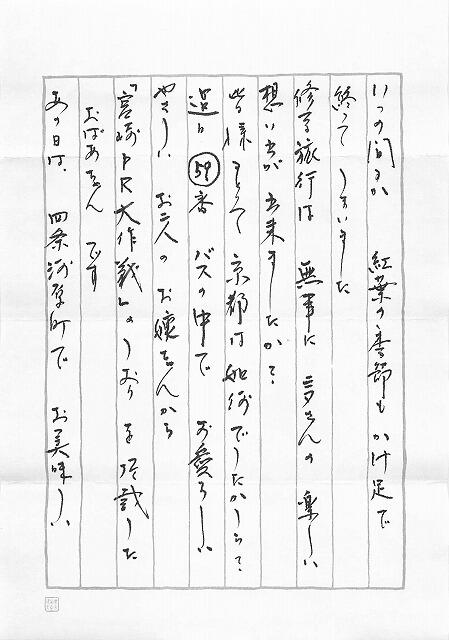 いつの間にか 紅葉の季節も かけ足で
終って しまいました
修学旅行は 無事に 沢さんの 楽しい
想い出が 出来ましたか?
皆様にとって 京都は 如何でしたかしら?
過日 59番 バスの中で お愛らしい
やさしい お二人の お嬢さんから
「宮崎PR大作戦」の しおりを 頂戴した
おばあちゃん です
あの日は、四条河原町で お美味しい